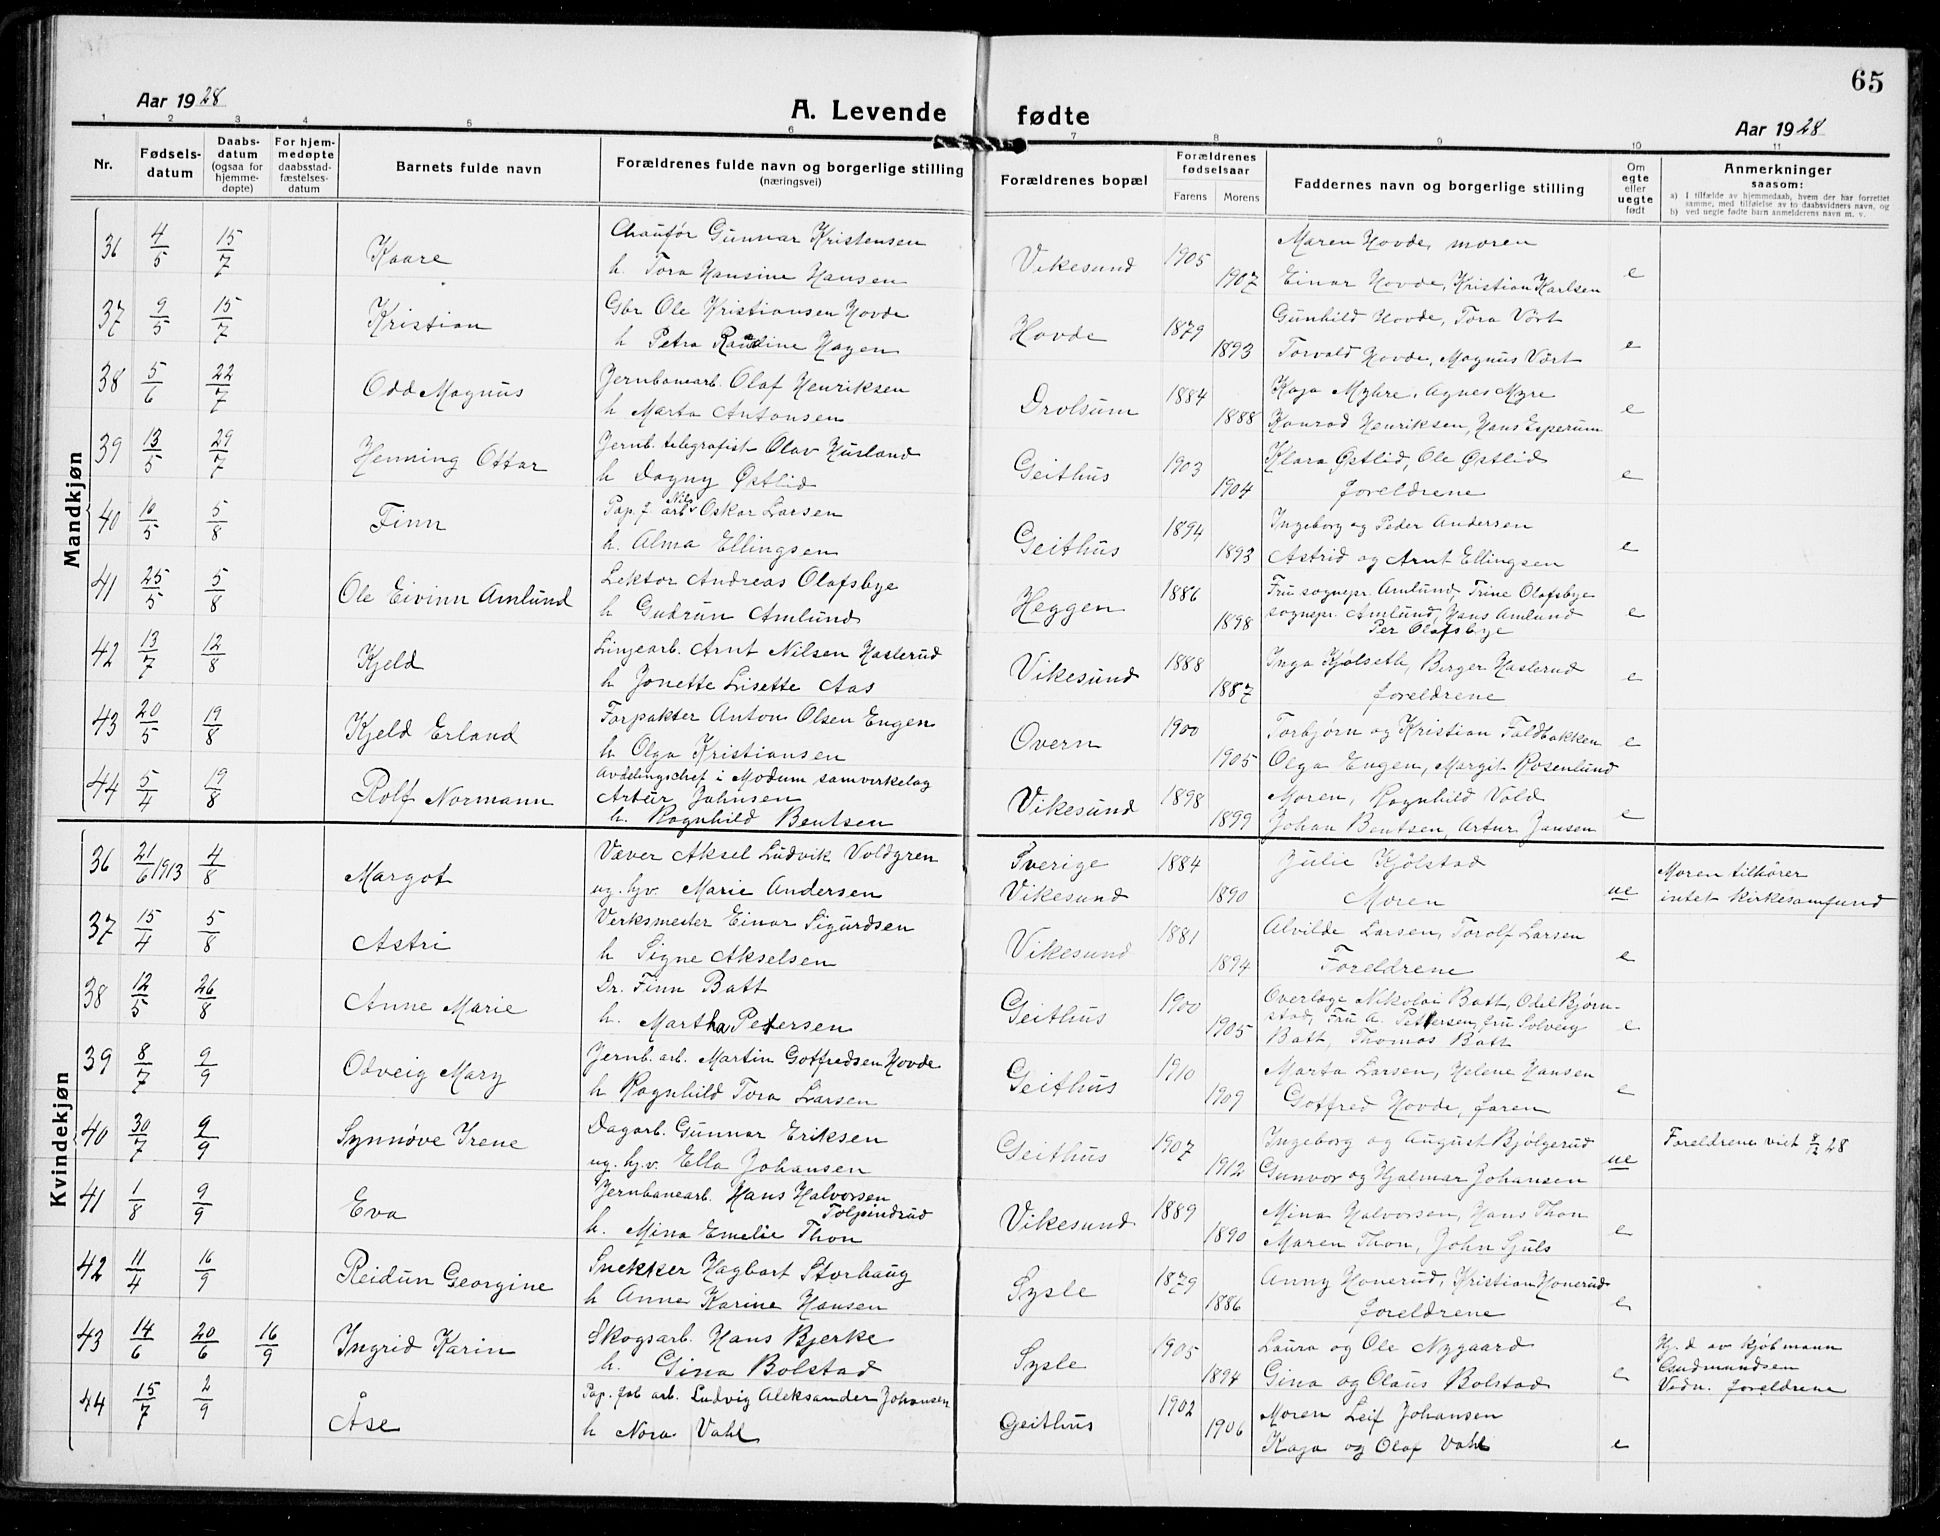 65
Aar 1928
A. Levende fødte
Aar 1928
1 2 3 4 5 6 7 8 9 10 11
Nr.
Fødsels-
datum
Daabs-
datum
(ogsaa for
hjemme-
døpte)
For hjem-
medøpte
daabsstad-
fæstelses-
datum
Barnets fulde navn
Forældrenes fulde navn og borgerlige stilling
(næringsvei)
Forældrenes bopæl
Forældrenes
fødselsaar
Farens Morens
Faddernes navn og borgerlige stilling
Om
egte
eller
uegte
født
Anmerkninger
saasom:
a) I tilfælde av hjemmedaab, hvem der har forrettet
samme, med tilføielse av to daabsvidners navn, og
b) ved uegte fødte barn anmelderens navn m. v.
Mandkjøn
36 4/5 15/7 Kaare
Chaufør Gunnar Kristensen
h. Tora Hansine Hansen
Vikesund 1905 1907
Maren Hovde, moren
Einar Hovde, Kristian Karlsen
e
37 9/5 15/7 Kristian
Gbr Ole Kristiansen Hovde
h Petra Randine Hagen
Hovde 1879 1893
Gunhild Hovde, Tora Vört
Torvald Hovde, Magnus Vört
e
38 5/6 22/7 Odd Magnus
Jernbanearb. Olaf Henriksen
h Marta Antonsen
Drolsum 1884 1888
Kaja Myhre, Agnes Myre
Konrad Henriksen, Hans Esperum
e
39 13/5 29/7 Henning Ottar
Jernb. telegrafist Olav Husland
h Dagny Østlid
Geithus 1903 1904
Klara Østlid, Ole Østlid
foreldrene
e
40 16/5 5/8 Finn
Pap. f arb Nils Oskar Larsen
h. Alma Ellingsen
Geithus 1894 1893
Ingeborg og Peder Andersen
Astrid og Arnt Ellingsen
e
41 25/5 5/8 Ole Eivinn Amlund
Lektor Andreas Olafsbye
h Gudrun Amlund
Heggen 1886 1898
Fru sognepr. Amlund, Trine Olafsbye
sognepr. Amlund, Hans Amlund
Per Olafsbye
e
42 13/7 12/8 Kjeld
Linjearb. Arnt Nilsen Haslerud
h Jonette Lisette Aas
Vikesund 1888 1887
Inga Kjølseth, Berger Haslerud
foreldrene
e
43 20/5 19/8 Kjeld Erland
Forpakter Anton Olsen Engen
h Olga Kristiansen
Overn 1900 1905
Torbjørn og Kristian Faldbakken
Olga Engen, Margit Rosenlund
e
44 5/4 19/8 Rolf Normann
Avdelingschef i Modum samvirkelag
Artur Johnsen
h. Ragnhild Bentsen
Vikesund 1898 1899
Moren, Ragnhild Vold
Johan Bentsen, Artur Jansen
e
Kvindekjøn
36 21/6 1913 4/8 Margot
Væver Aksel Ludvik Voldgren
ug. hjv. Marie Andersen
Sverige
Vikesund 1884 1890
Julie Kjölstad
Moren
ue
Moren tilhører
intet kirkesamfund
37 15/4 5/8 Astri
Verksmester Einar Sigurdsen
h Signe Akselsen
Vikesund 1881 1894
Alvilde Larsen, Torolf Larsen
Foreldrene
e
38 12/5 26/8 Anne Marie
Dr. Finn Batt
h. Martha Petersen
Geithus 1900 1905
Overlæge Nikolai Batt, Odd Bjørn-
stad, Fru A. Pettersen, fru Solveig
Batt, Thomas Batt
e
39 8/7 9/9 Odveig Mary
Jernb. arb. Martin Gotfredsen Hovde
h Ragnhild Tora Larsen
Geithus 1910 1909
Marta Larsen, Helene Hansen
Gotfred Hovde, faren
e
40 30/7 9/9 Synnøve Irene
Dagarb. Gunnar Eriksen
ug. hj.v. Ella Johansen
Geithus 1907 1912
Ingeborg og August Bjølgerud
Gunvor og Hjalmar Johansen
ue
Foreldrene viet 8/12 28
41 1/8 9/9 Eva
Jernbanearb. Hans Halvorsen
Tolpinrud
h. Mina Emelie Thon
Vikesund 1889 1890
Mina Halvorsen, Hans Thon
Maren Thon, John Sjuls
e
42 11/4 16/9 Reidun Georgine
Snekker Hagbart Storhaug
h Anne Karine Hansen
Sysle 1879 1886
Anny Honerud, Kristian Honerud
foreldrene
e
43 14/6 20/6 16/9 Ingrid Karin
Skogsarb. Hans Bjerke
h. Gina Bolstad
Sysle 1905 1894
Laura og Ole Nygaard
Gina og Olaus Bolstad
e
Hj. d av kjöbmann
Gudmundsen
Vidn. foreldrene
44 15/7 2/9 Åse
Pap. fab arb. Ludvig Aleksander Johansen
h Nora Vahl
Geithus 1902 1906
Moren Leif Johansen
Kaja og Olaf Vahl
e